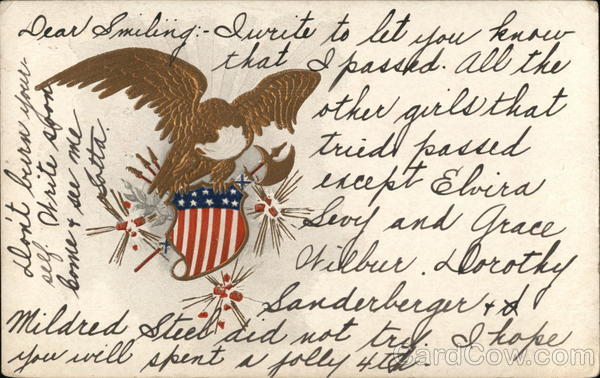 Dear Smiling:- I write to let you know
that I passed. All the
other girls that
tried passed
except Elvira
Levy and Grace
Wilbur. Dorothy
Sanderberger + &
Mildred Steel did not try. I hope
you will spent a jolly 4th.
Don't burn your-
self. Write soon
come & see me
Lotta.
CardCow.com